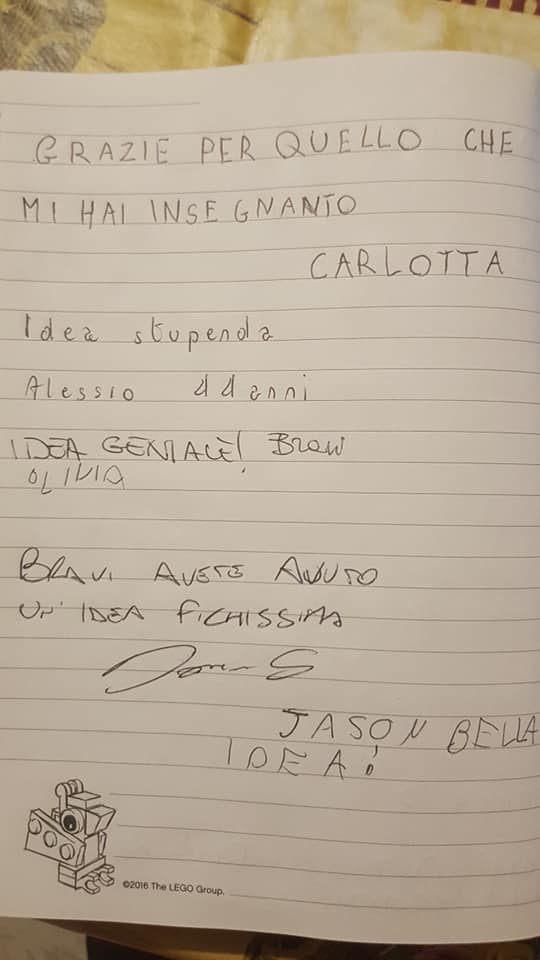 GRAZIE PER QUELLO CHE
MI HAI INSEGNANTO
CARLOTTA
Idea stupenda
Alessio 11 anni
IDEA GENIALE! BRAVI
OLIVIA
BRAVI AVETE AVUTO
UN'IDEA FICHISSIMA
JASON BELLA
IDEA!
©2016 The LEGO Group.